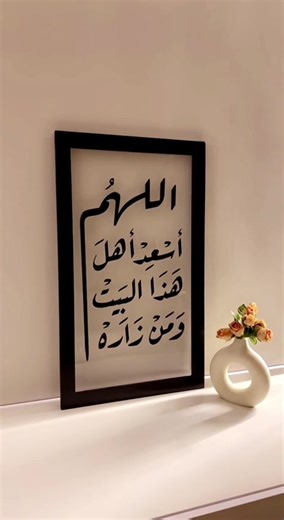 اللهُم
أسْعِدْ أهلَ
هَذَا البَيَتْ
وَمَنْ زَارَهْ